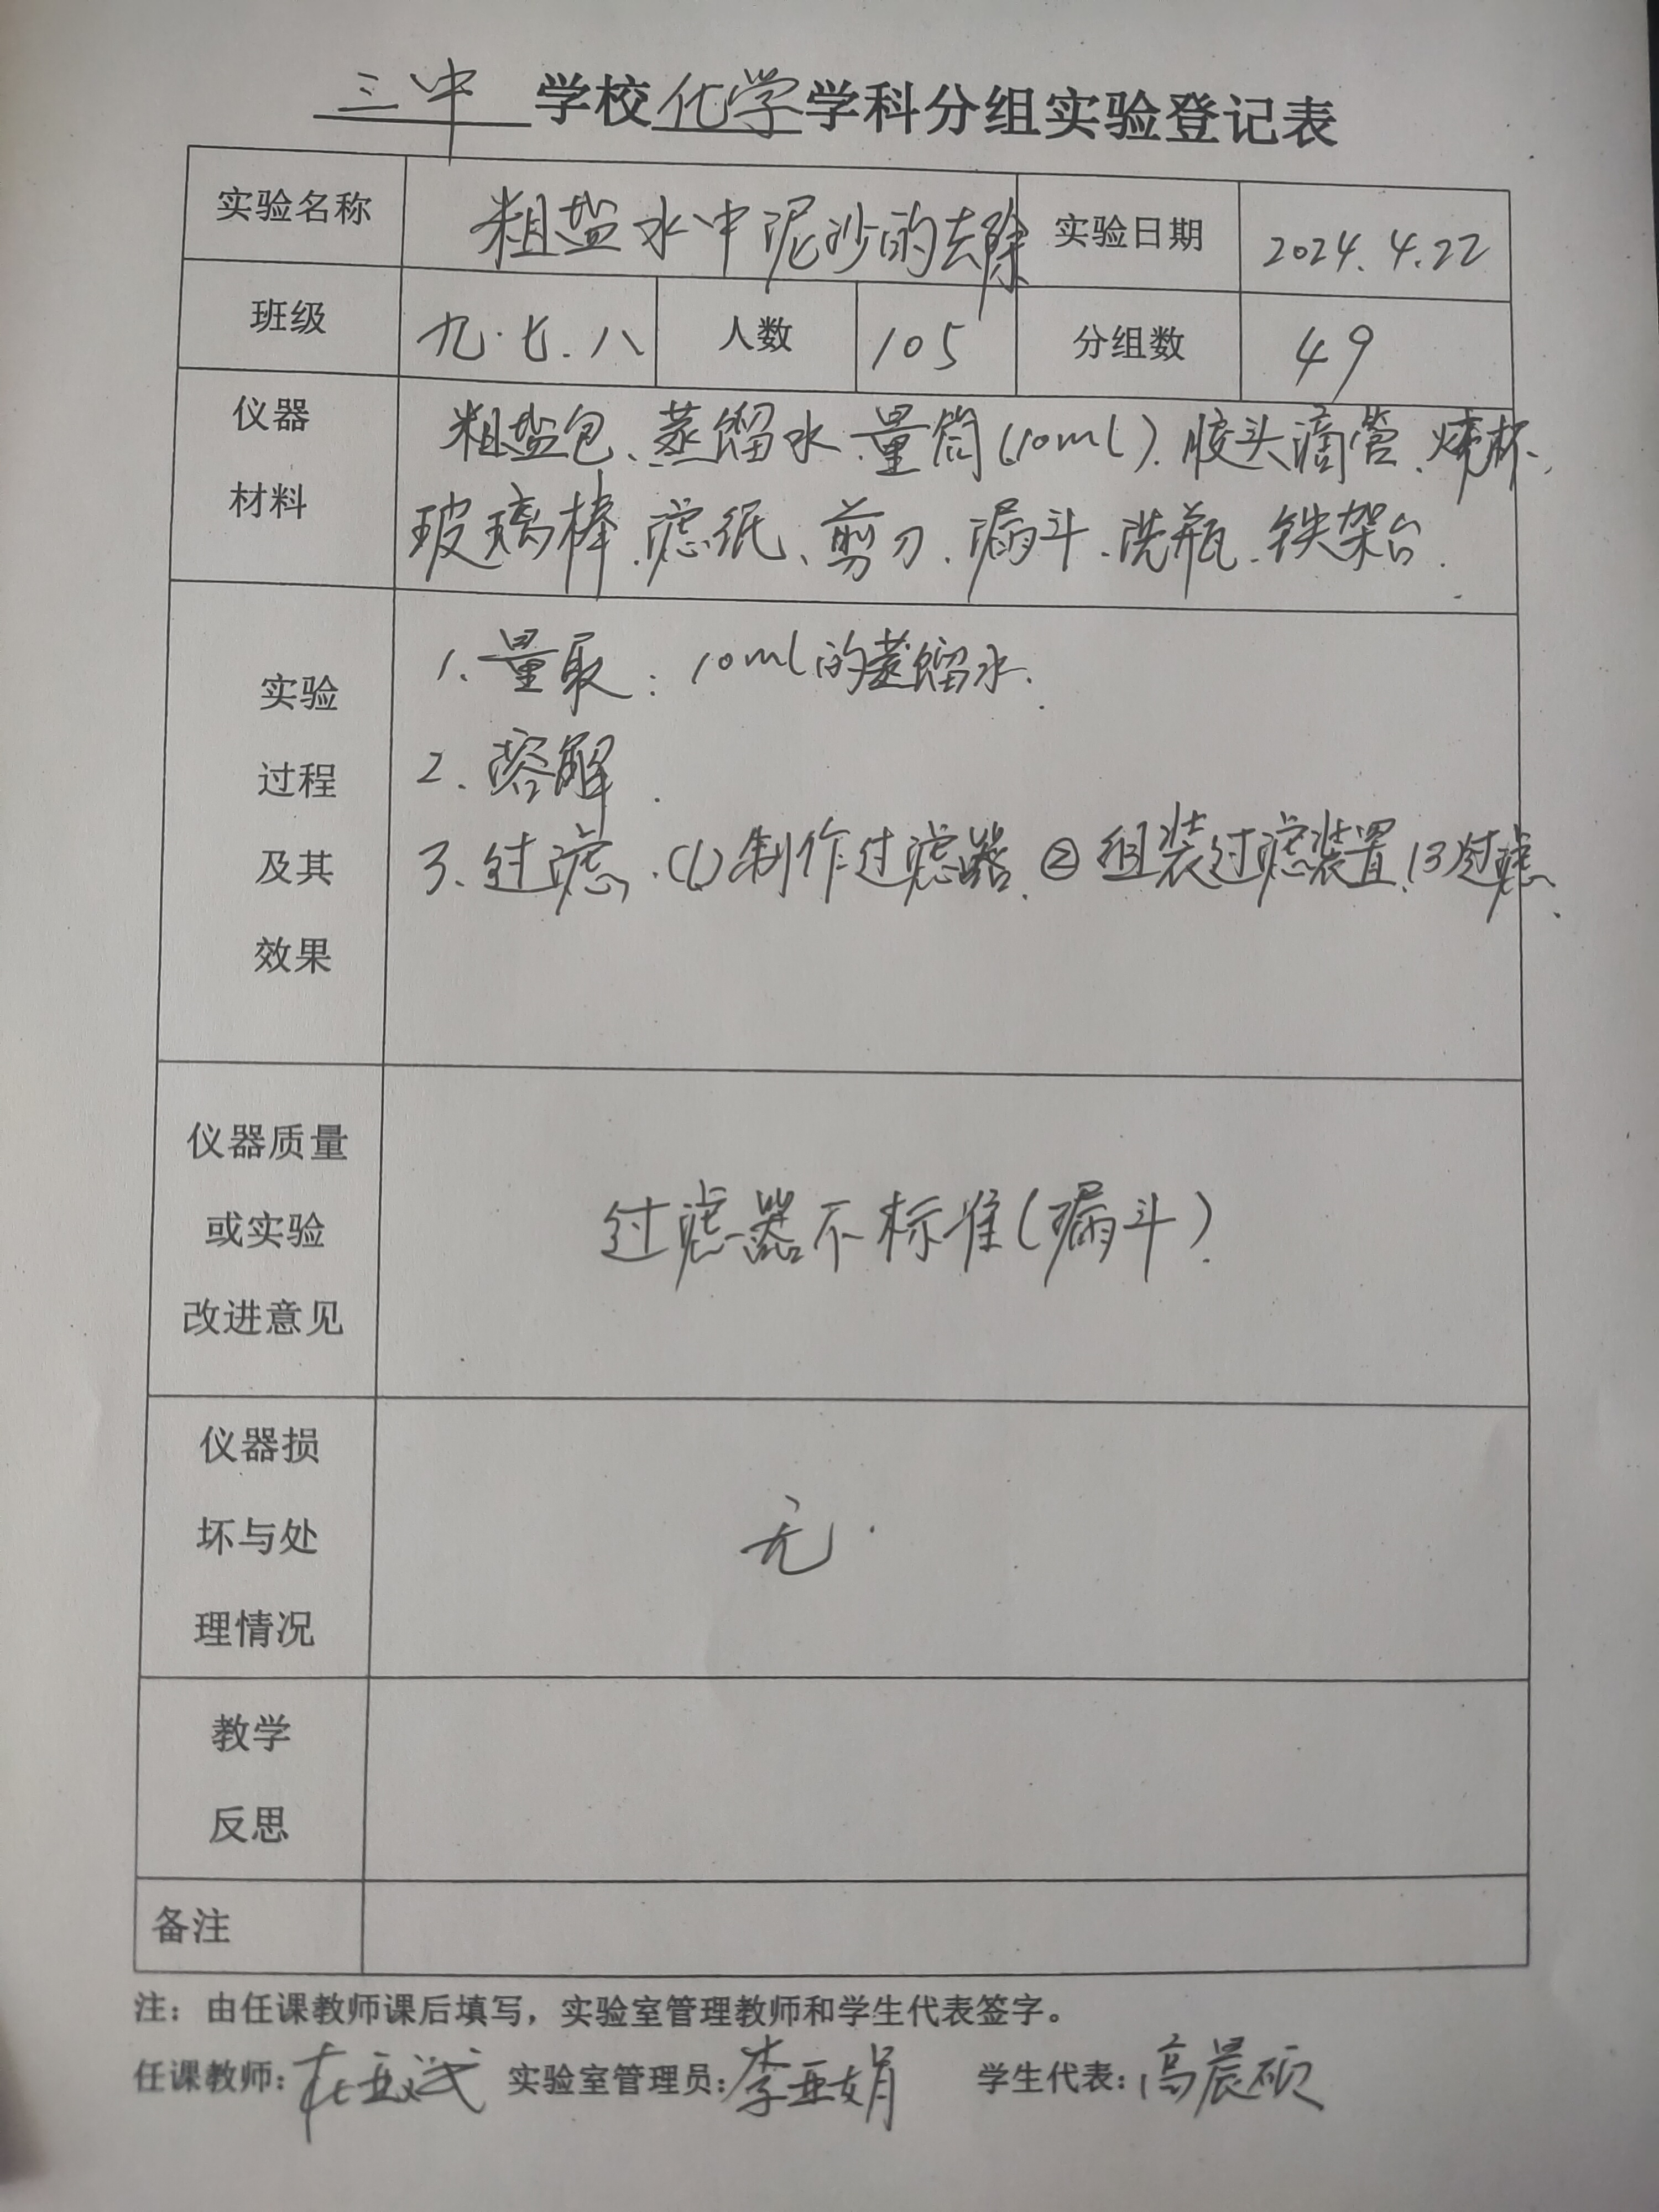 三中学校化学学科分组实验登记表
实验名称 粗盐水中泥沙的去除 实验日期 2024.4.22
班级 九.七.八 人数 105 分组数 49
仪器
材料
粗盐包、蒸馏水.量筒(10ml).胶头滴管.烧杯、
玻璃棒.滤纸、剪刀.漏斗.洗瓶.铁架台.
实验
过程
及其
效果
1.量取:10ml的蒸馏水.
2.溶解.
3.过滤.(1)制作过滤器.②组装过滤装置.(3)过滤.
仪器质量
或实验
改进意见
过滤器不标准(漏斗).
仪器损
坏与处
理情况
无.
教学
反思
备注
注：由任课教师课后填写，实验室管理教师和学生代表签字。
任课教师: 实验室管理员:李亚娟 学生代表:高晨硕